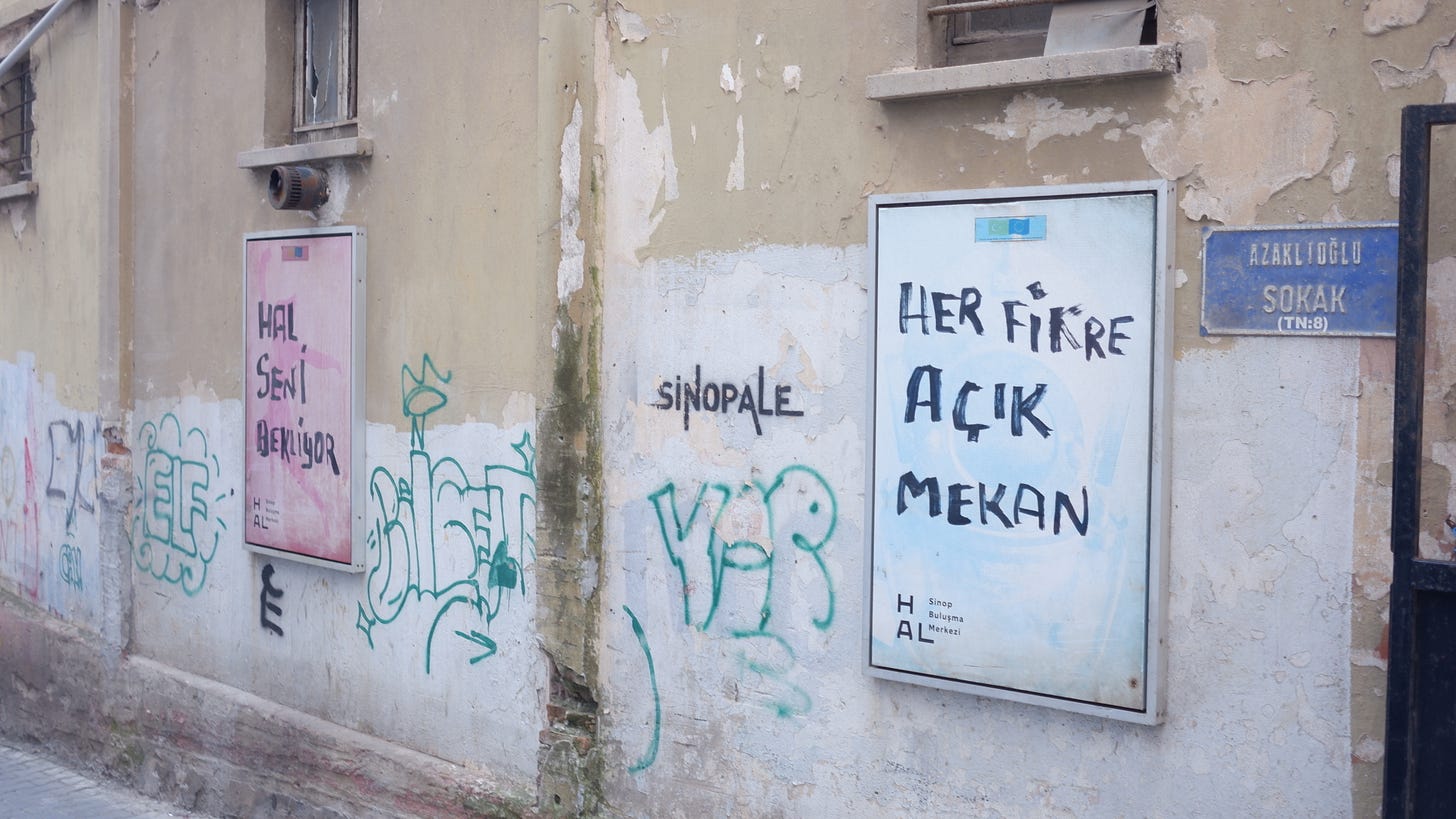 HAL
SENİ
BEKLİYOR
H
AL
Sinop
Buluşma
Merkezi
ELF
E
SİNOPALE
HER FİKRE
AÇIK
MEKAN
H
AL
Sinop
Buluşma
Merkezi
AZAKLIOĞLU
SOKAK
(TN:8)